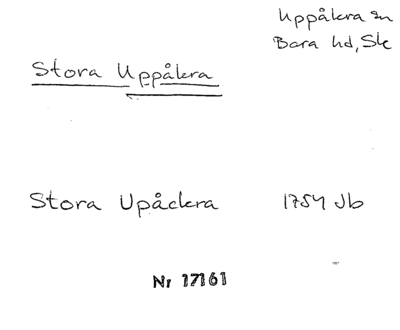 Uppåkra sn
Bara hd, Sk
Stora Uppåkra
Stora Upåckra 1754 Jb
Nr 17161